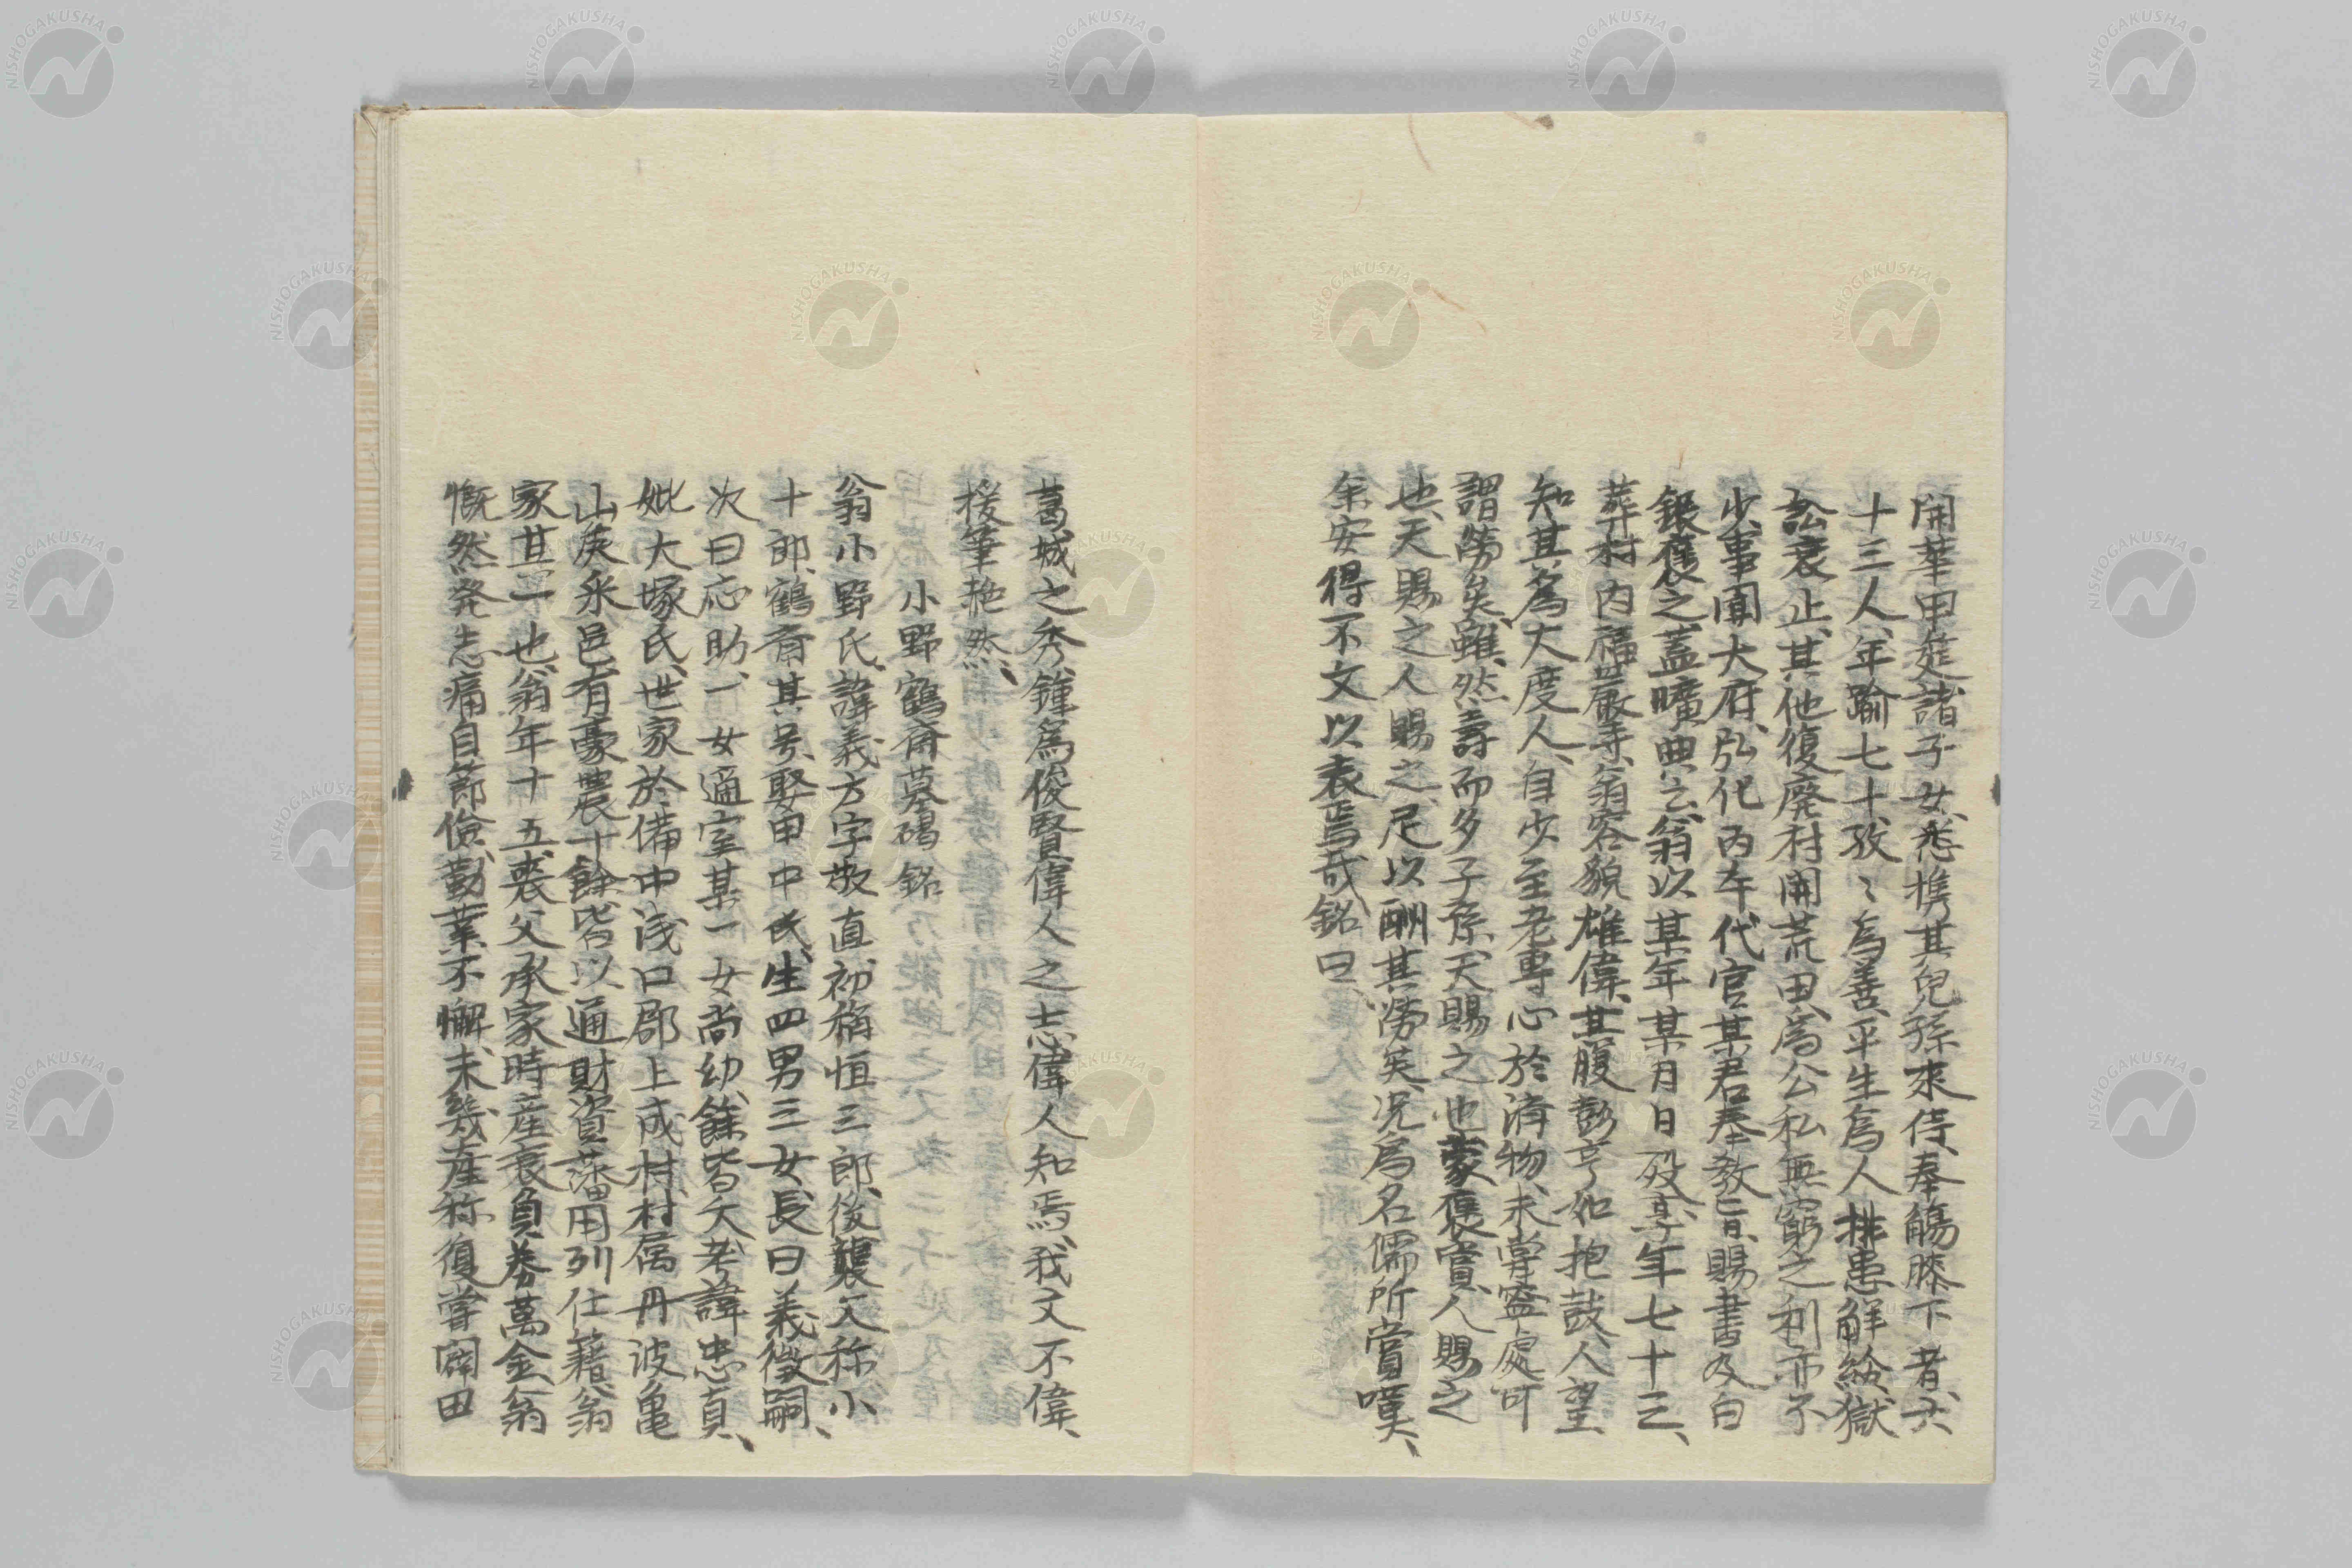 開華甲筵諸子女、悉携其兒孫来侍、奉觴膝下者、六
十三人、年踰七十、孜々為善、平生為人排患解紛、獄
訟衰止、其他復廃村開荒田、為公私無窮之利亦不
少、事聞大府、弘化丙午代官某君奉教旨、賜書及白
銀褒之、蓋曠典云、翁以某年某月日歿、享年七十三、
葬村内福嚴寺、翁容貌雄偉、其腹彭亨如抱鼓、人望
知其為大度人、自少至老専心於済物、未嘗寧處、可
謂勞矣、雖然壽而多子孫、天賜之也、蒙褒賞、人賜之
也、天賜之人賜之、足以酬其勞矣、况為名儒所賞嘆、
余安得不文以表焉哉、銘曰、
葛城之秀鍾為俊賢偉人之志偉人知焉、我文不偉、
援筆赧然、
小野鶴斎墓碣銘
翁小野氏、諱義方字敬直、初稱恒三郎、後襲父称小
十郎、鶴斎其号、娶田中氏、生四男三女、長曰義徴嗣、
次曰応助、一女適室某一女尚幼、餘皆夭、考諱忠貞、
妣大塚氏、世家於備中浅口郡上成村、村属丹波亀
山侯采邑、有豪農十餘、皆以通財資藩用列仕籍、翁
家其一也、翁年十五、喪父承家、時産衰負券萬金、翁
慨然発志、痛自節儉、勤業不懈、未幾産称復、嘗闢田